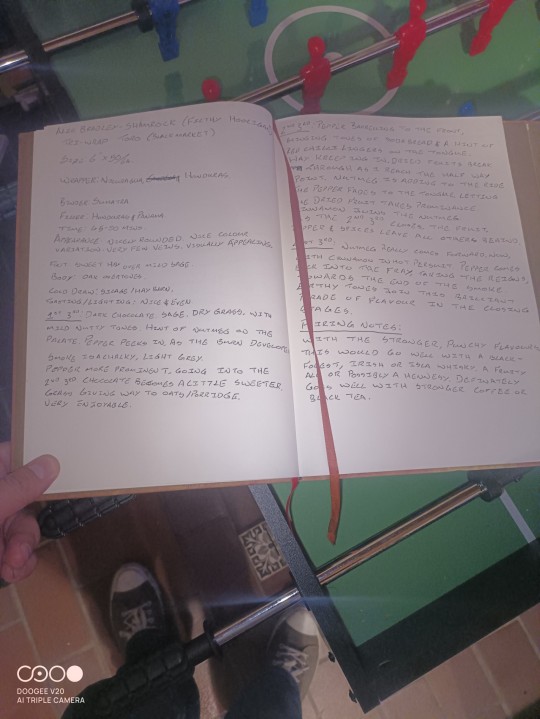 ALEC BRADLEY - SHAMROCK (FILTHY HOOLIGAN)
SIZE: 6 x 50
WRAPPER: NICARAGUA HONDURAS
BINDER SUMATRA
FILLER: HONDURAS & PANAMA
TIME: 60-70 MINS.
APPEARANCE NICELY ROUNDED. NICE COLOUR
VARIATION VERY FEW VEINS. VISUALLY APPEALING.
FOOT: SWEET HAY MILD SAGE.
BODY: OAK
COLD DRAW:
CUTTING/LIGHTING: NICE & EVEN.
1ST 3RD: DARK CHOCOLATE, SAGE, DRY GRASS, WITH
MILD NUTTY TONES. HINT OF NUTMEG ON THE
PALATE. PEPPER PEEKS IN AS THE BURN DEVELOPS
SMOKE IS LIGHT GREY.
PEPPER MORE PROMINENT, GOING INTO THE
2ND 3RD CHOCOLATE BECOMES A LITTLE SWEETER.
GRASS GIVING WAY TO OATS/PORRIDGE.
VERY ENJOYABLE.
2ND 3RD: PEPPER BARGING TO THE FRONT,
TONES OF & A HINT OF
ON THE TONGUE.
DRIED FRUITS BREAK
THROUGH AS I REACH THE HALF WAY
POINT. NUTMEG IS ADDING TO THE
THE PEPPER FADES TO THE LETTING
THE DRIED FRUIT TAKE
CINNAMON JOINS THE NUTMEG
AS THE 2ND 3RD THE FRUIT,
PEPPER & SPICES LEAVE ALL OTHERS BEHIND.
3RD: NUTMEG REALLY COMES FORWARD NOW,
WITH CINNAMON IN HOT PURSUIT. PEPPER COMES
BACK INTO THE FRAY, TAKING THE REIGNS,
TOWARDS THE END OF THE SMOKE
EARTHY TONES JOIN THIS BRILLIANT
PARADE OF FLAVOUR IN THE CLOSING
STAGES.
PAIRING NOTES:
WITH THE STRONGER, PUNCHY FLAVOURS
THIS WOULD GO WELL WITH A BLACK-
FOREST, IRISH OR ISLA WHISKY. A FRUITY
ALE OR POSSIBLY A HENNESY. DEFINATELY
GOES WELL WITH STRONGER COFFEE OR
BLACK TEA.
DOOGEE V20
AI TRIPLE CAMERA